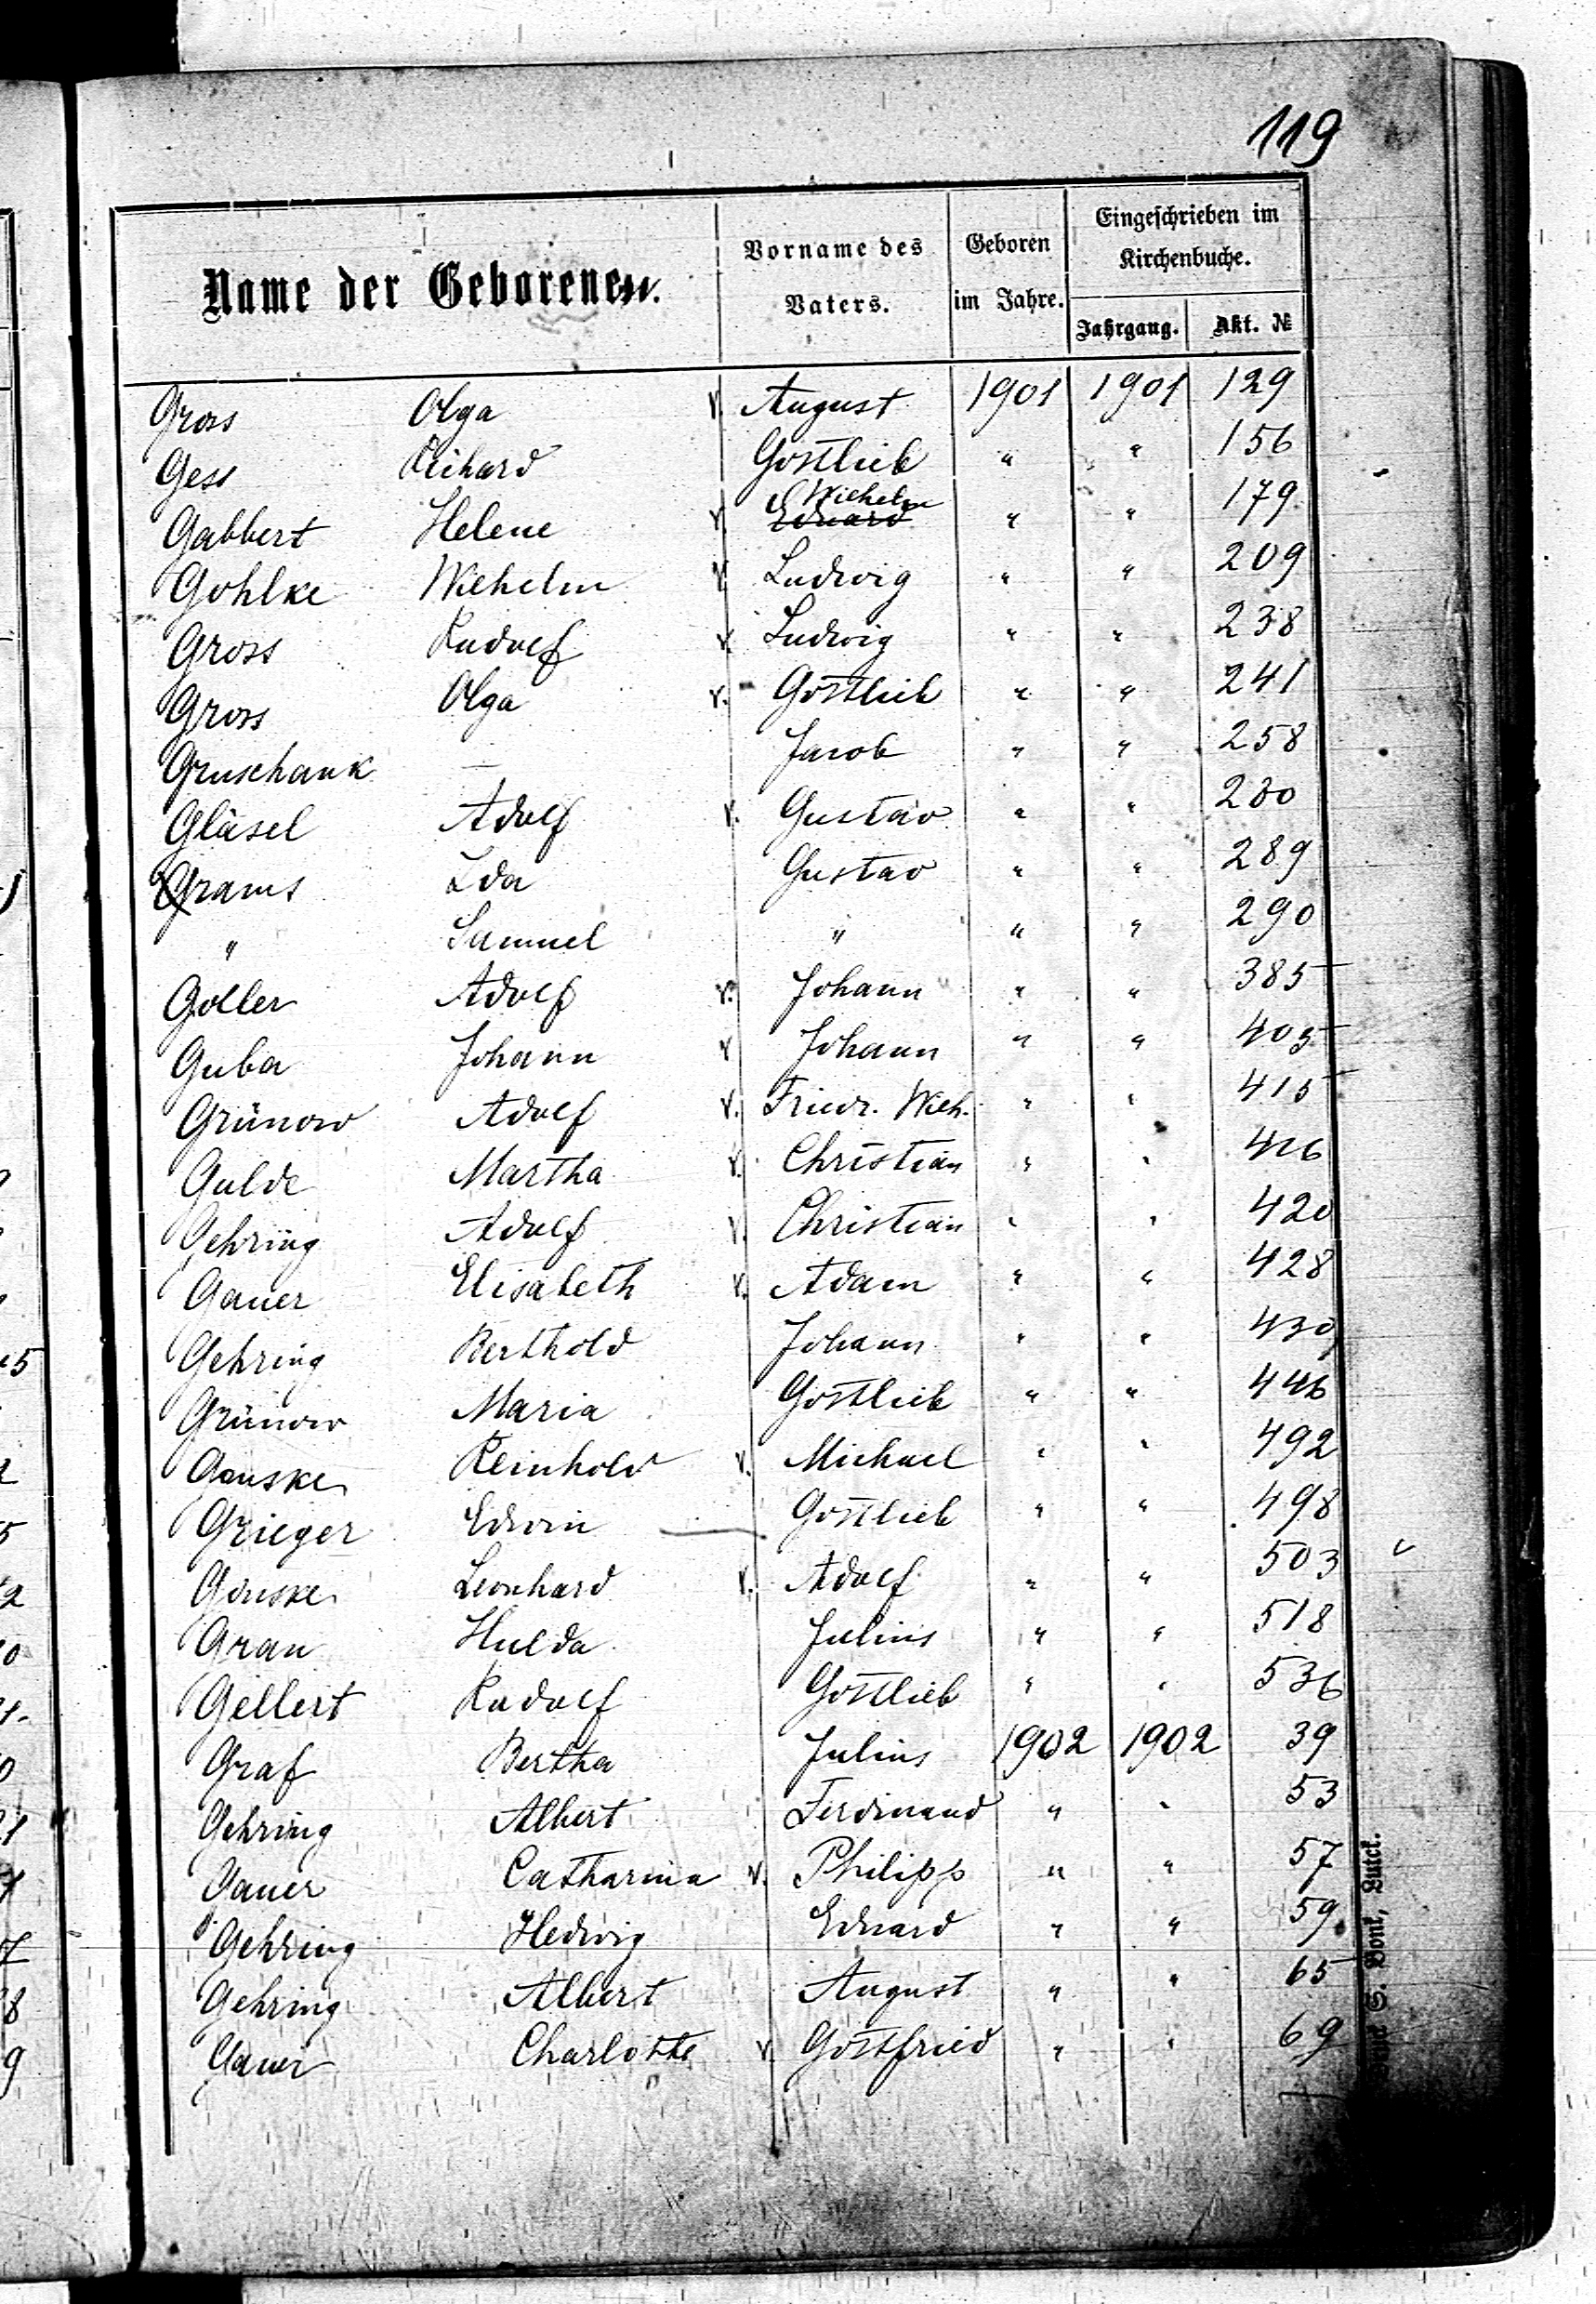 119
Name der Geborenen.
Vorname des Vaters.
Geboren im Jahre.
Eingeschrieben im Kirchenbuche.
Jahrgang. Akt. №
Gross Olga v. August 1901 1901 129
Gess Richard Gottlieb " " 156
Gabbert Helene v. Eduard Wilhelm " " 179
Gohlke Wilhelm v. Ludwig " " 209
Gross Rudolf v. Ludwig " " 238
Gross Olga v. Gottlieb " " 241
Gruschank — Jacob " " 258
Gläsel Adolf v. Gustav " " 280
Grams Ida Gustav " " 289
" Samuel " " " 290
Goller Adolf v. Johann " " 385
Guba Johann v Johann " " 405
Grünow Adolf v. Friedr. Wilh. " " 415
Gulde Martha v. Christian " " 416
Gehring Adolf v. Christian " " 420
Gauer Elisabeth v. Adam " " 428
Gehring Berthold Johann " " 430
Grünow Maria Gottlieb " " 446
Gonske Reinhold v. Michael " " 492
Grieger Edwin — Gottlieb " " 498
Gonske Leonhard v. Adolf " " 503
Grau Hulda Julius " " 518
Gellert Rudolf Gottlieb " " 536
Graf Bertha Julius 1902 1902 39
Gehring Albert Ferdinand " " 53
Gauer Catharina v. Philipp " " 57
Gehring Hedwig Eduard " " 59
Gehring Albert August " " 65
Gauer Charlotte v. Gottfried " " 69